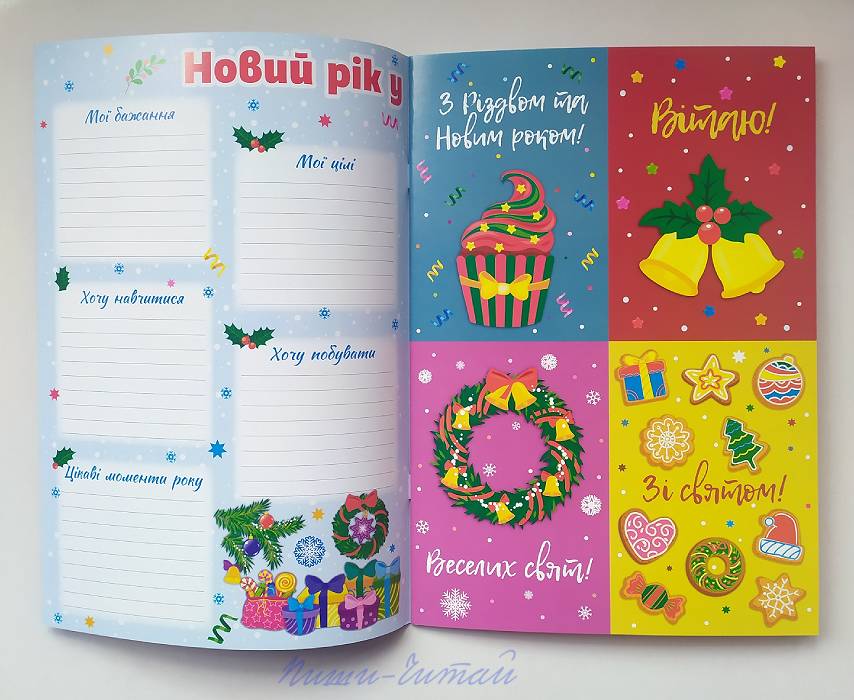 Новий рік у
Мої бажання
Мої цілі
Хочу навчитися
Хочу побувати
Цікаві моменти року
З Різдвом та
Новим роком!
Вітаю!
Веселих свят!
Зі святом!
Пиши-Читай